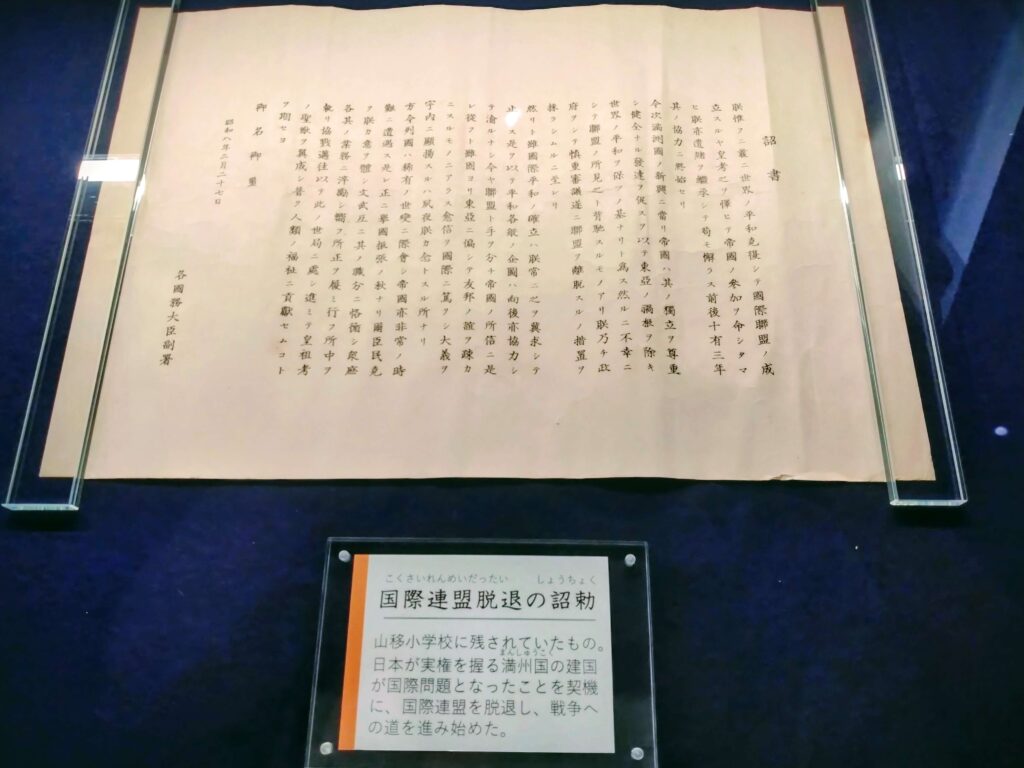 詔書
朕惟フニ曩ニ世界ノ平和克復シテ國際聯盟ノ成
立スルヤ皇考之ヲ懌ヒテ帝國ノ參加ヲ命シタマ
ヒ朕亦遺緒ヲ繼承シテ苟モ懈ラス前後十有三年
其ノ協力ニ終始セリ
今次滿洲國ノ新興ニ當リ帝國ハ其ノ獨立ヲ尊重
シ健全ナル發達ヲ促スヲ以テ東亞ノ禍根ヲ除キ
世界ノ平和ヲ保ツノ基ナリト爲ス然ルニ不幸ニ
シテ聯盟ノ所見之ト背馳スルモノアリ朕乃チ政
府ヲシテ愼重審議遂ニ聯盟ヲ離脱スルノ措置ヲ
採ラシムルニ至レリ
然リト雖國際平和ノ確立ハ朕常ニ之ヲ冀求シテ
止マス是ヲ以テ平和各般ノ企圖ハ向後亦協力シ
テ渝ルナシ今ヤ聯盟ト手ヲ分チ帝國ノ所信ニ是
レ從フト雖固ヨリ東亞ニ偏シテ友邦ノ誼ヲ疎カ
ニスルモノニアラス愈信ヲ國際ニ篤クシ大義ヲ
宇内ニ顯揚スルハ夙夜朕カ念トスル所ナリ
方今列國ハ稀有ノ世變ニ際會シ帝國亦非常ノ時
艱ニ遭遇ス是レ正ニ擧國振張ノ秋ナリ爾臣民克
ク朕カ意ヲ體シ文武互ニ其ノ職分ニ恪循シ衆庶
各其ノ業務ニ淬勵シ嚮フ所正ヲ履ミ行フ所中ヲ
執リ協戮邁往以テ此ノ世局ニ處シ進ミテ皇祖考
ノ聖猷ヲ翼成シ普ク人類ノ福祉ニ貢獻セムコト
ヲ期セヨ
御名御璽
昭和八年三月二十七日
各國務大臣副署
こくさいれんめいだったい しょうちょく
国際連盟脱退の詔勅
山移小学校に残されていたもの。
まんしゅうこく
日本が実権を握る満州国の建国
が国際問題となったことを契機
に、国際連盟を脱退し、戦争へ
の道を進み始めた。